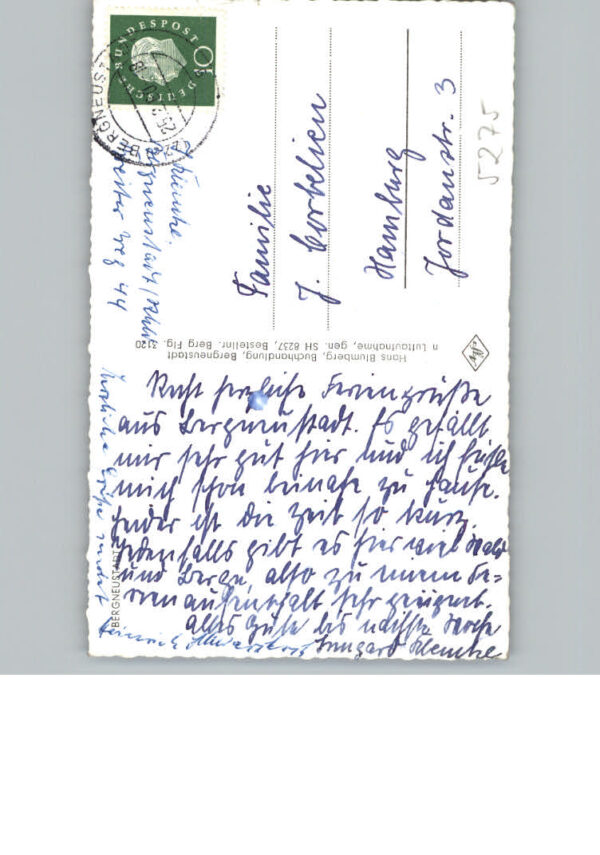 DEUTSCHE BUNDESPOST
10
BERGNEUSTADT
25.
Bergneustadt/Rhld
Breiter Weg 44
Familie
J. Corbelien
Hamburg
Jordanstr. 3
5275
Hans Blumberg, Buchhandlung, Bergneustadt
n Luftaufnahme, gen. SH 8237, Bestellnr. Berg Flg. 3120
Agfa
BERGNEUSTADT
Recht herzliche Feriengrüße
aus Bergneustadt. Es gefällt
mir sehr gut hier und ich fühle
mich schon beinahe zu Hause.
Leider ist die Zeit so kurz.
Jedenfalls gibt es hier viel Wald
und Berge, also zu einem Fe-
rienaufenthalt sehr geeignet.
Alles Gute bis nächste Woche
Irmgard
Herzliche Grüße
Heinrich